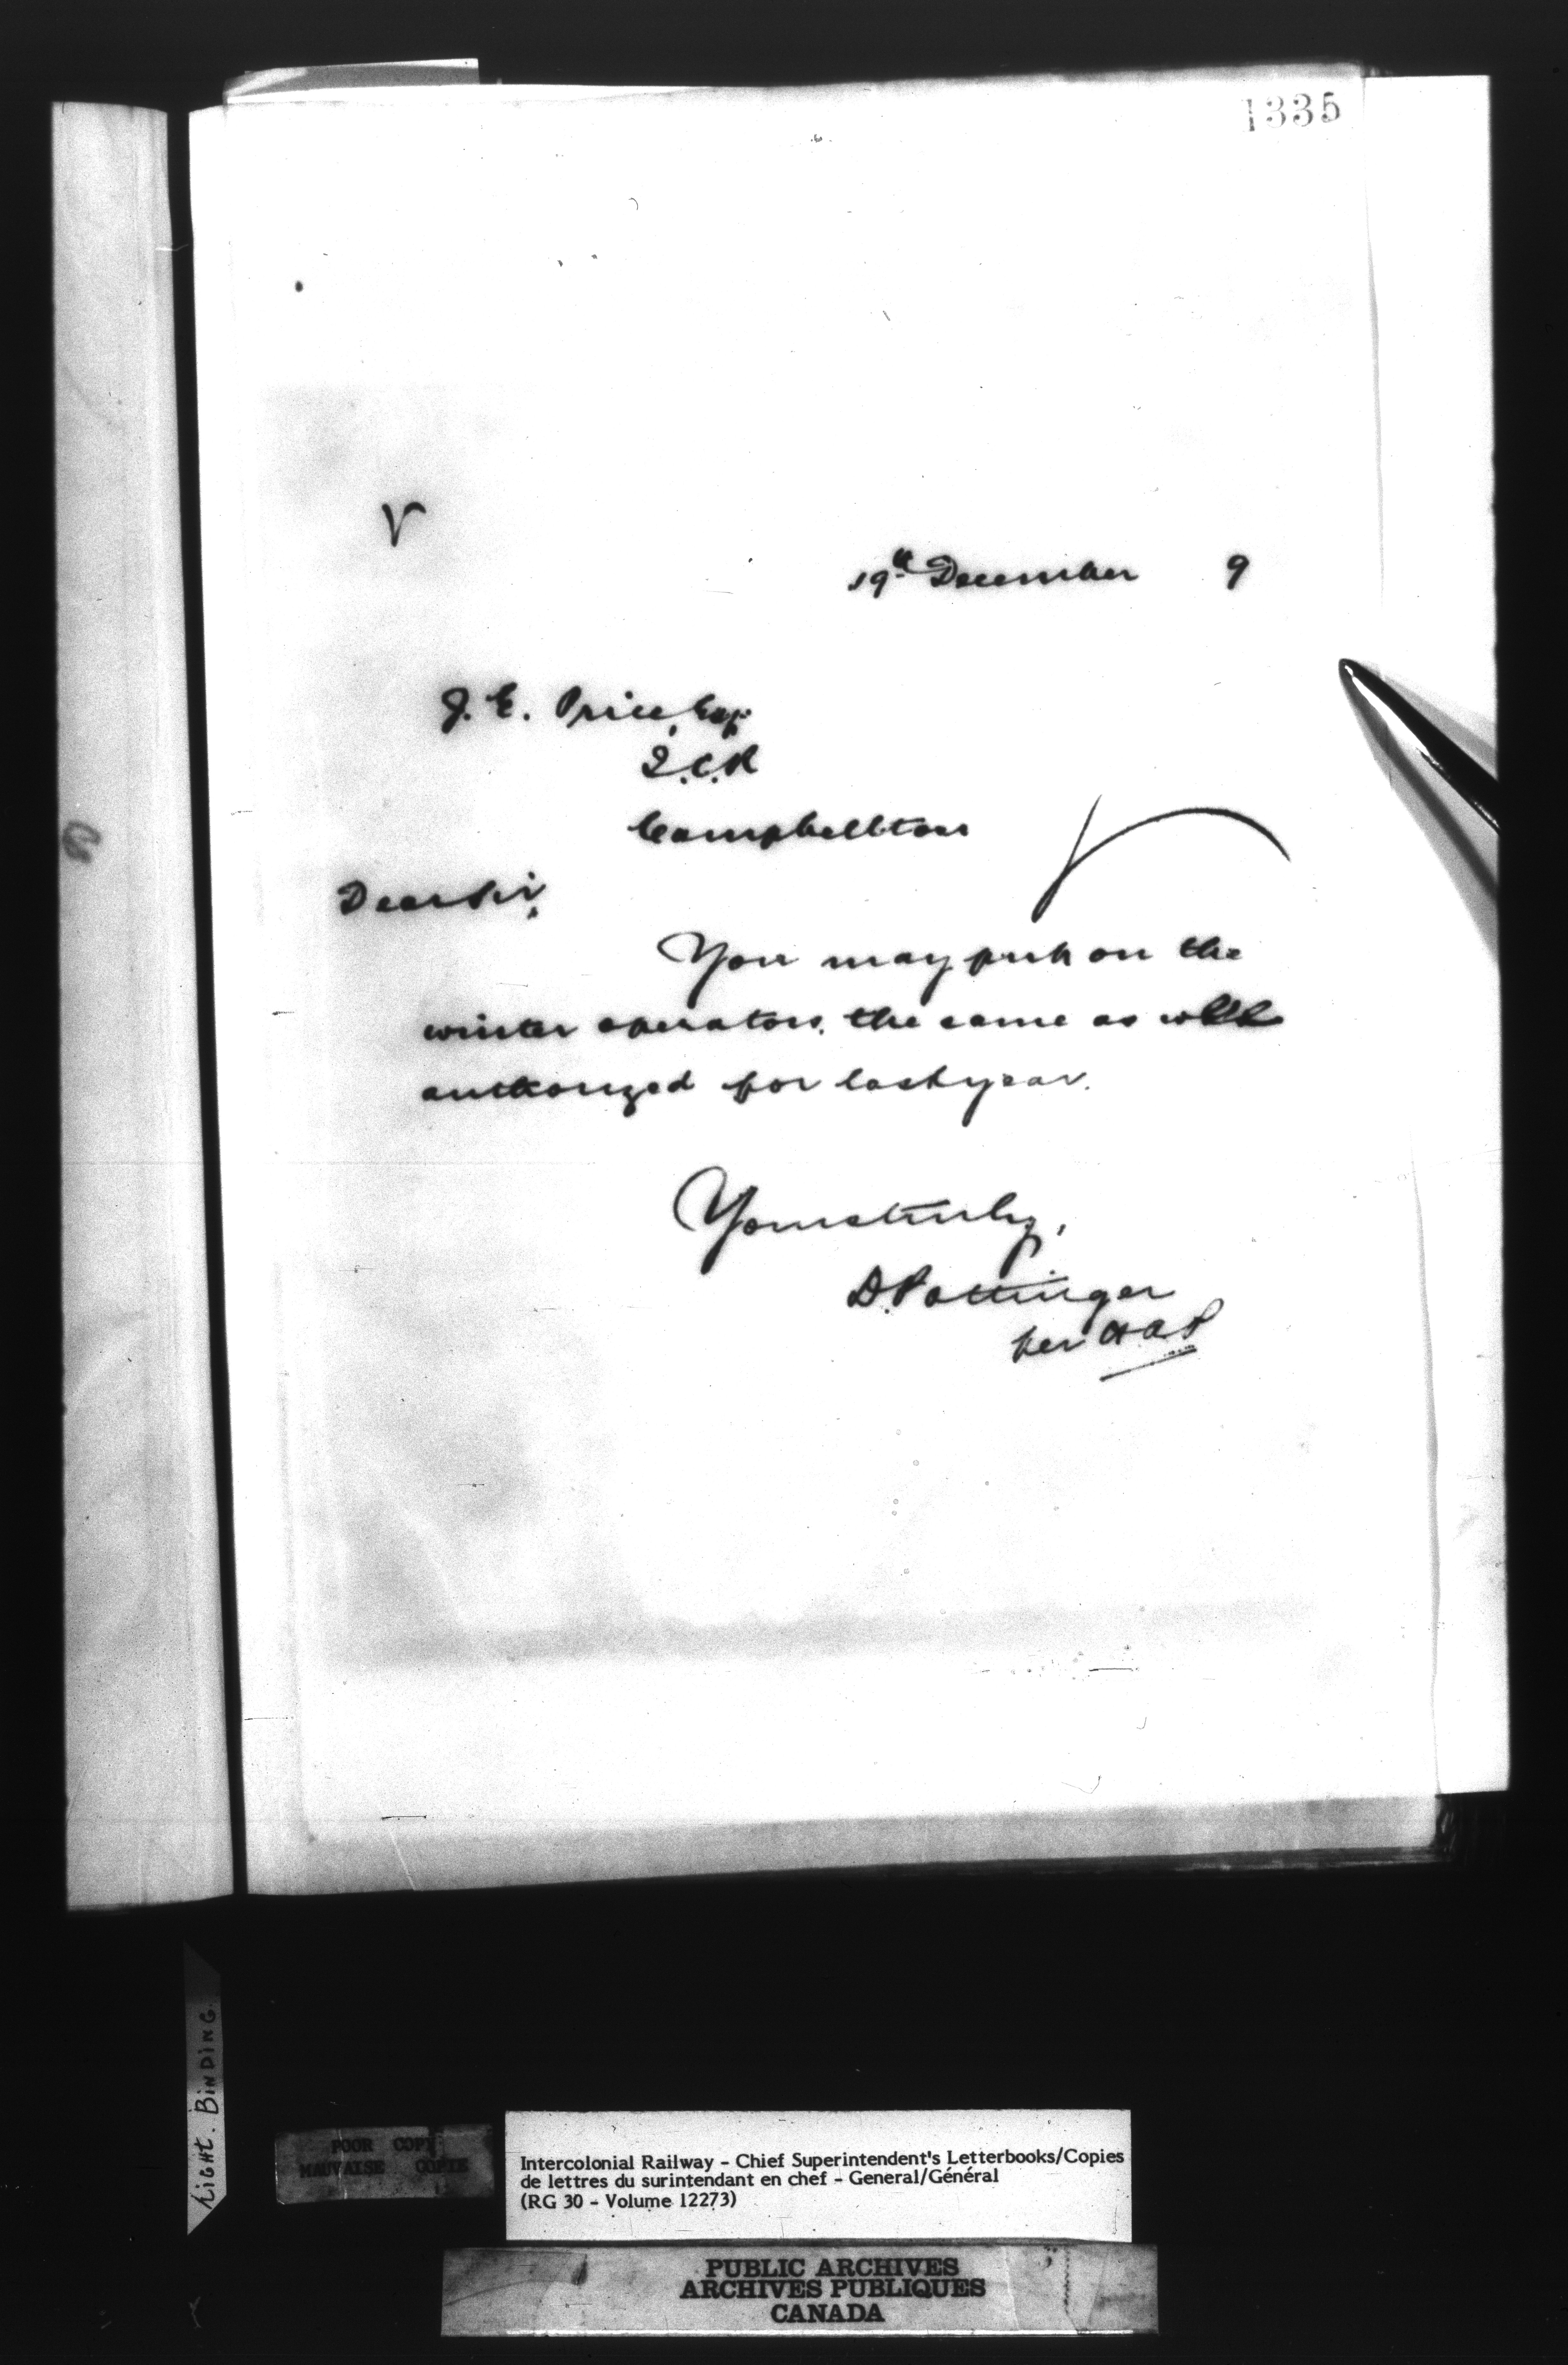 1335
19th December 9
J. E. Price, Esq.
I.C.R
Campbellton
Dear Sir,
You may put on the
winter operators, the same as
authorized for last year.
Yours truly,
D. Pottinger
per
TIGHT. BINDING.
POOR COPY
MAUVAISE COPIE
Intercolonial Railway - Chief Superintendent's Letterbooks/Copies
de lettres du surintendant en chef - General/Général
(RG 30 - Volume 12273)
PUBLIC ARCHIVES
ARCHIVES PUBLIQUES
CANADA